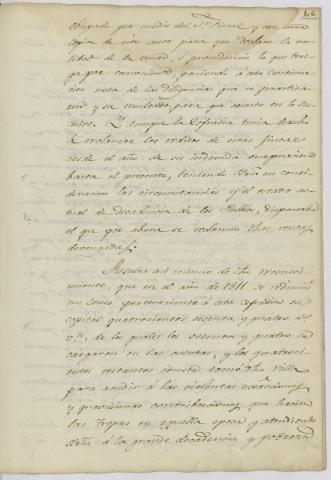 Obispado por medio del Sr. Fiscal y con una
copia de este auto para que declare la nu-
lidad de la venta, o providencie lo que ten-
ga por conveniente, poniendo a esta continua-
ción nota de las diligencias que se practica-
ren y su resultado, para que conste en lo suce-
sivo. Y aunque la Cofradia tenia derecho
á reclamar los reditos de estas fincas
desde el año de su indevida enagenacion
hasta el presente, teniendo Sría en consi-
deracion las circunstancias y el estado ac-
tual de decadencia de los Pueblos, dispensaba
el que por ahora se reclamen dhas rentas
devengadas.
Resulta asi mismo de dho reconoci-
miento, que en el año de 1811 se redimió
un censo perteneciente á esta cofradia su
capital quatrocientos setenta y quatro rs
vn, de los quales los setenta y quatro se
cargaron en las cuentas, y los quatrocien-
tos restantes consta tomó dha villa
para acudir á las violentas exacciones
y precisimas contribuciones que hacian
las tropas en aquella epoca y atendiendo
Sría á la grande decadencia y pobreza